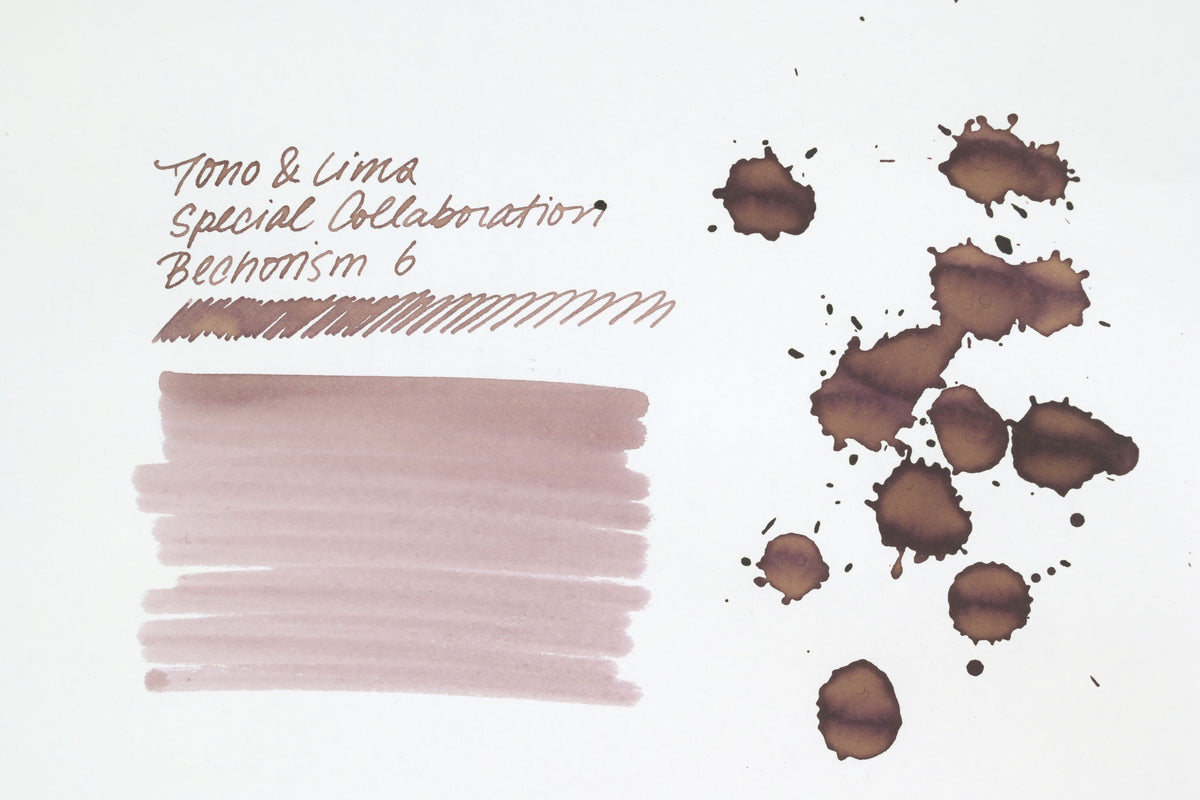 Tono & Lima
Special Collaboration
Bechorism 6